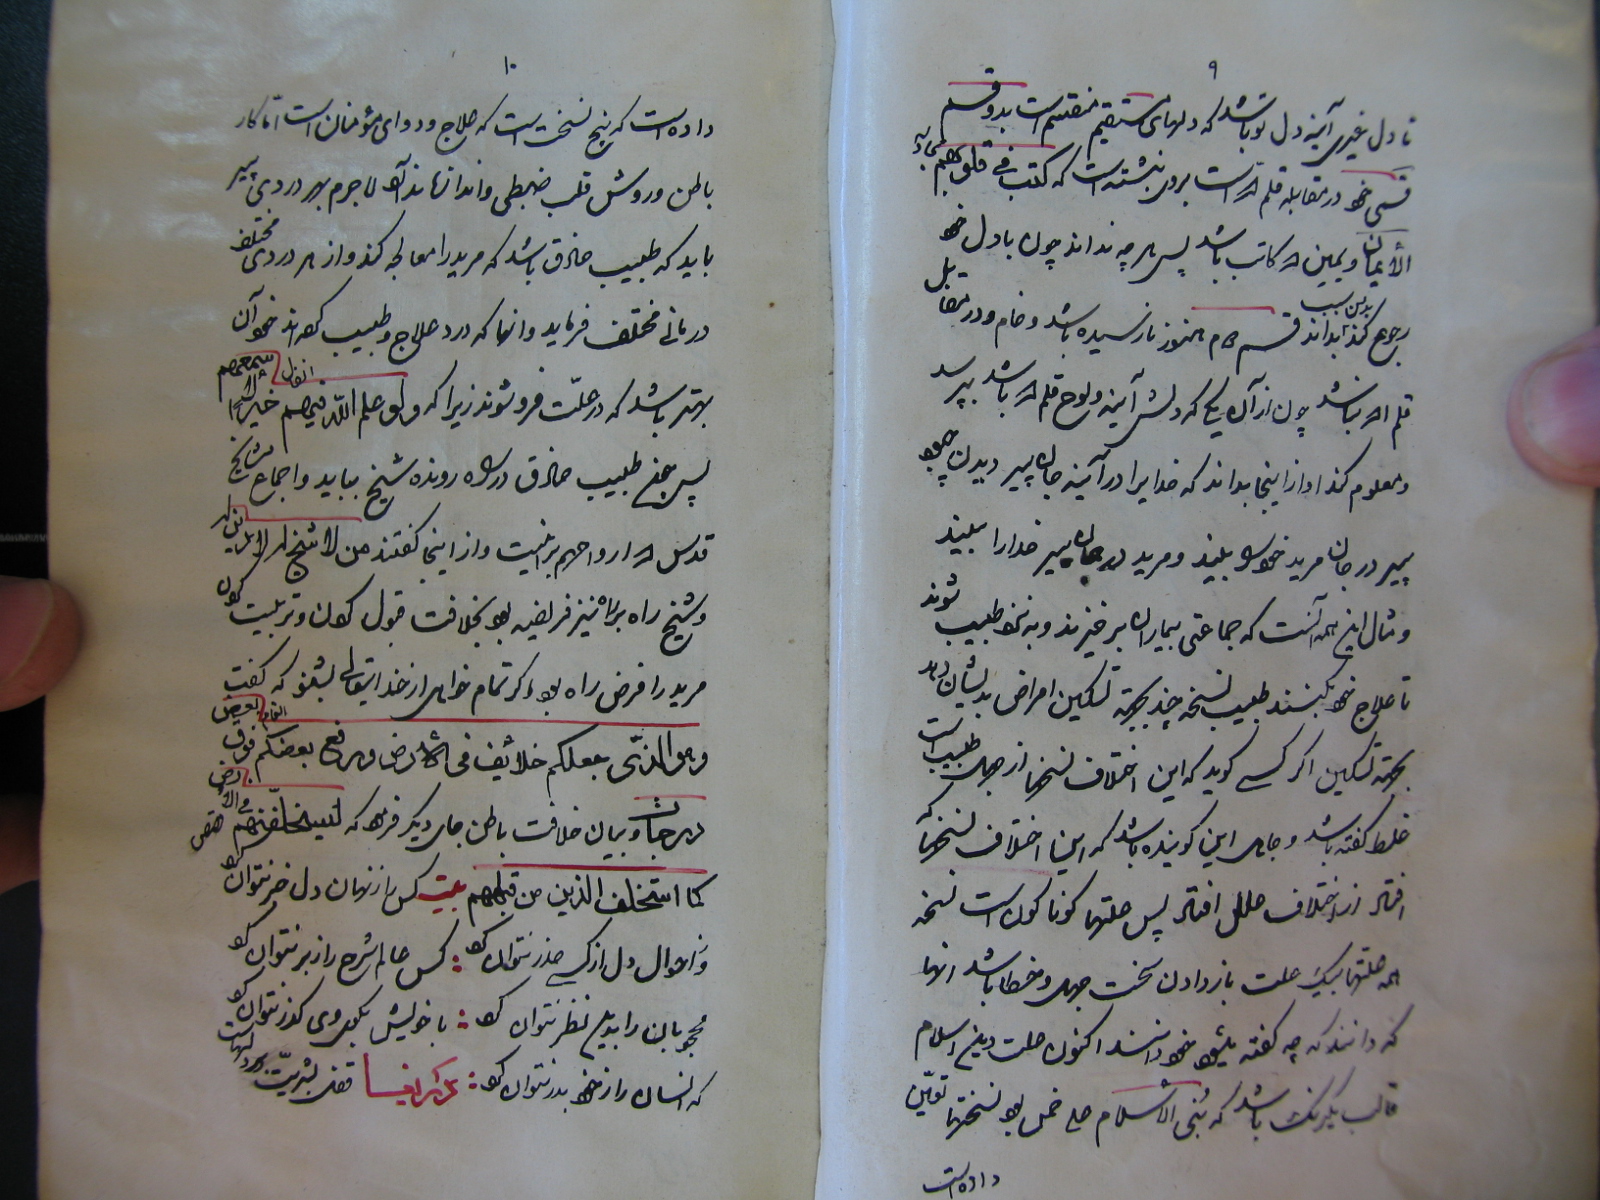 ۹
تا دل غیری آینه دل تو باشد که دلهای مستقیم منقسم است بدو قسم
قسمی خود در مقابله قلم اله است بروی نبشته است که کتب فی قلوبهم
الأیمان و یمین اله کاتب باشد پس هر چه نداند چون با دل خود
رجوع کند بداند قسم دوم هنوز نارسیده باشد و خام و در مقابل
بدین سبب
قلم اله نباشد چون از آن یکی که دلش آینه و لوح قلم اله باشد بپرسد
و معلوم کند او از اینجا بداند که خدایرا در آینه جان پیر دیدن چبود
پیر در جان مرید خود را بیند و مرید در جان پیر خدا را بیند
و مثال این همه آنست که جماعتی بیماران برخیزند و به نزد طبیب شوند
تا علاج خود کنند طبیب نسخه چند بجهة تسکین امراض بدیشان دهد
بجهة تسکین اگر کسی گوید که این اختلاف نسخها از جهل طبیب است
غلط گفته باشد و جاهل این گوینده باشد که این اختلاف نسخها که
افتاد از اختلاف علل افتاد پس علتها گوناگون است نسخه
همه علتها بیک علت باز دادن سخت جهل و خطا باشد آنها
که دانند که چه گفته میشود خود دانند اکنون علت دین اسلام
قالب یکرنگ باشد که بُنی الاسلام علی خمس بود نسختها تعیّن
داده است
۱۰
داده است که پنج نسخت است که علاج و دوای مؤمنان است امّا کار
باطن و روش قلب ضبطی و اندازه ندارد لاجرم بهر دردی پیر
باید که طبیب حاذق باشد که مرید را معالجه کند و از هر دردی مختلف
درمانی مختلف فرماید و آنها که درد علاج و طبیب کردند خود آن
بهتر باشد که در علّت فرو شوند زیرا که ولو علم اللّه فیهم خیرا لأسمعهم
پس یعنی طبیب حاذق در راه رونده شیخ بباید و اجماع مشایخ
قدس اله ارواحهم بر نیست و از اینجا گفتند من لا شیخ له لا دین له
و شیخ راه برا نیز فریضه بود بخلافت قبول کردن و تربیت کردن
مرید را فرض راه بود اگر تمام خواهی از خدا تعالی بشنو که گفت
وهو الذّی جعلکم خلائف فی الارض ورفع بعضکم فوق بعض
درجات و بیان خلافت باطن جای دیگر فرمود که لیستخلفنهم فی الارض
کما استخلف الذین من قبلهم بیت کس را ز نهان دل خبر نتوان کرد
و ز احوال دل از کسی حذر نتوان کرد : کس عالم شرح را زبر نتوان کرد
محجوبان را بدین نظر نتوان کرد : با خویش بکوی وی گذر نتوان کرد
که انسان را ز خود بدر نتوان کرد : قفس بشریّت